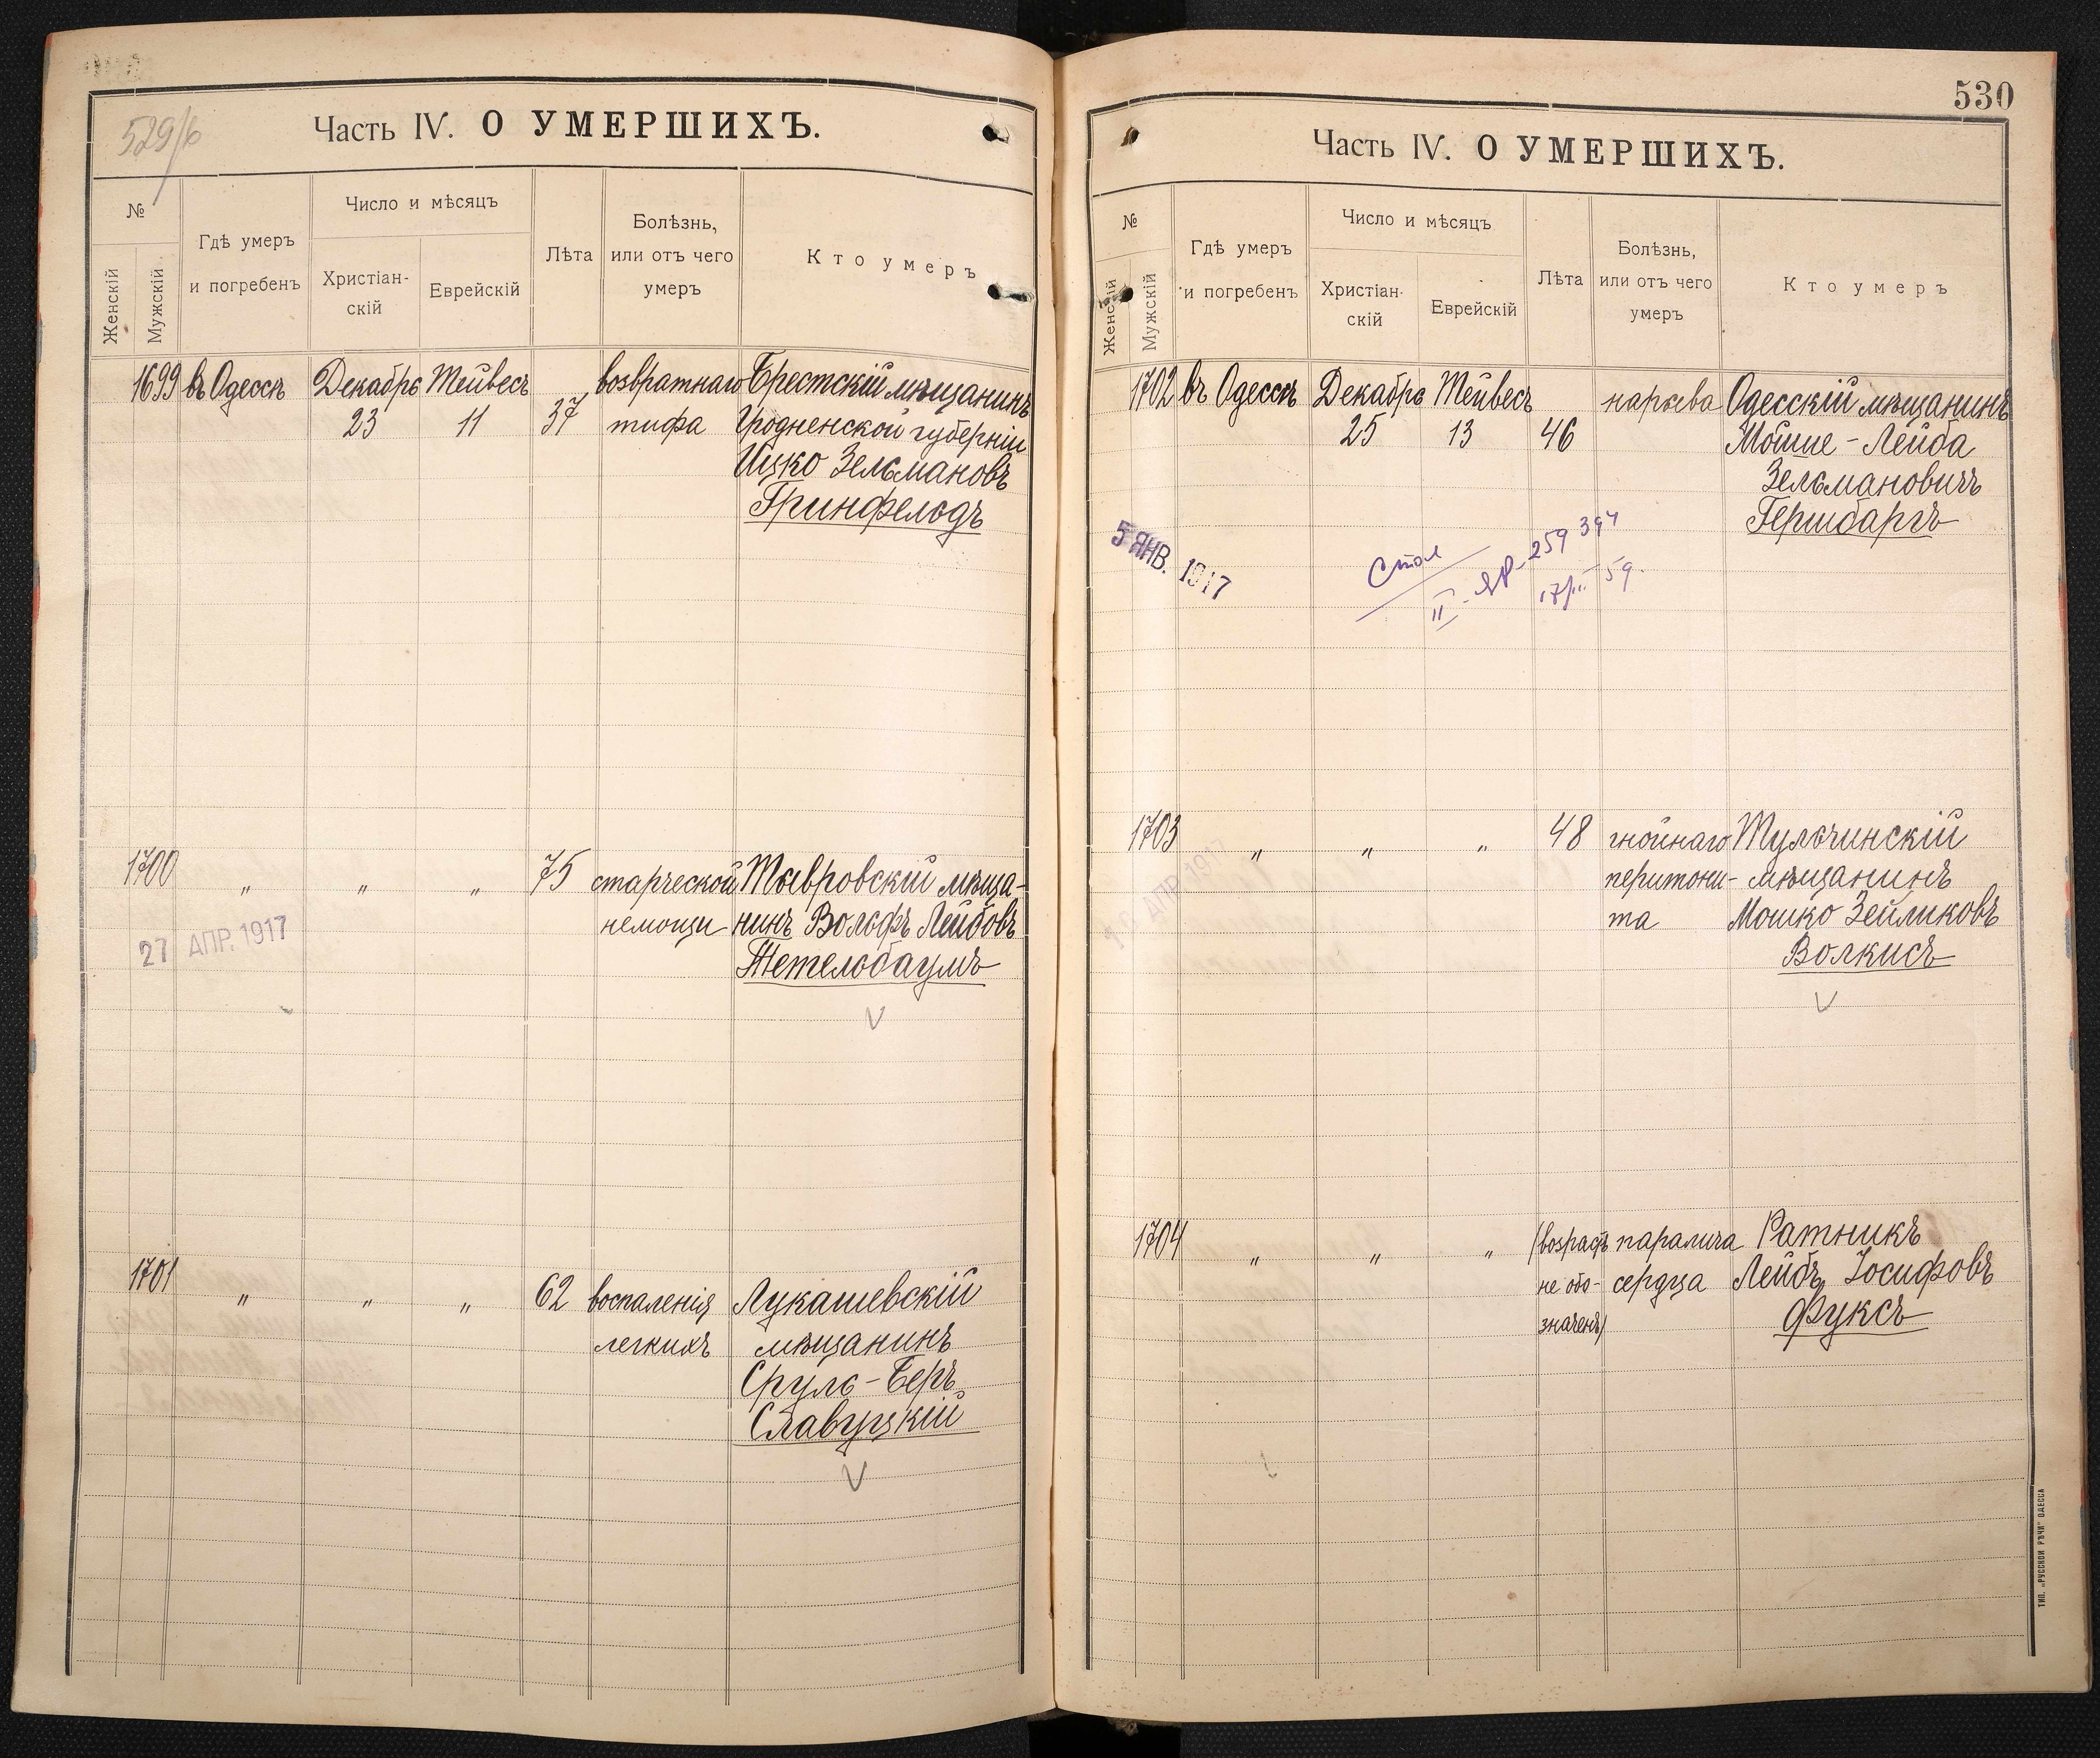 529/б
Часть IV. О УМЕРШИХЪ.
№
Женскій
Мужскій
Гдѣ умеръ
и погребенъ
Число и мѣсяцъ
Христіан-
скій
Еврейскій
Лѣта
Болѣзнь,
или отъ чего
умеръ
Кто умеръ
1699 въ Одессѣ Декабрь Тейвесъ возвратнаго Брестскій мѣщанинъ
23 11 37 тифа Гродненской губерніи
Ицко Зельмановъ
Гринфельдъ
1700 " " " 75 старческой Тывровскій мѣща-
немощи нинъ Вольфъ Лейбовъ
Тетельбаумъ
27 АПР. 1917
1701 " " " 62 воспаленія Лукашевскій
легкихъ мѣщанинъ
Сруль-Беръ
Славуцкій
530
Часть IV. О УМЕРШИХЪ.
№
Женскій
Мужскій
Гдѣ умеръ
и погребенъ
Число и мѣсяцъ
Христіан-
скій
Еврейскій
Лѣта
Болѣзнь,
или отъ чего
умеръ
Кто умеръ
1702 въ Одессѣ Декабрь Тейвесъ нарыва Одесскій мѣщанинъ
25 13 46 Мошше-Лейба
Зельмановичъ
Гершбаргъ
5 ЯНВ. 1917
Стол
II 259394
59.
1703 " " " 48 гнойнаго Тульчинскій
перитони- мѣщанинъ
та Мошко Зейликовъ
Волкисъ
АПР 1917
1704 " " " (возрастъ паралича Ратникъ
не обо- сердца Лейбъ Іосифовъ
значенъ) Фуксъ
ТИП. „РУССКОЙ РѢЧИ" ОДЕССА